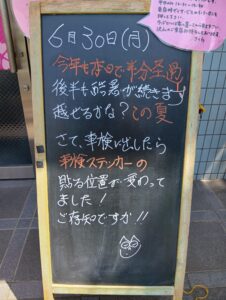 6月30日(月)
今年も本日で半分経過
後半も酷暑が続きます
越せるかな?この夏
さて、車検に出したら
車検ステッカーの
貼る位置が変わって
ました!
ご存知ですか!!